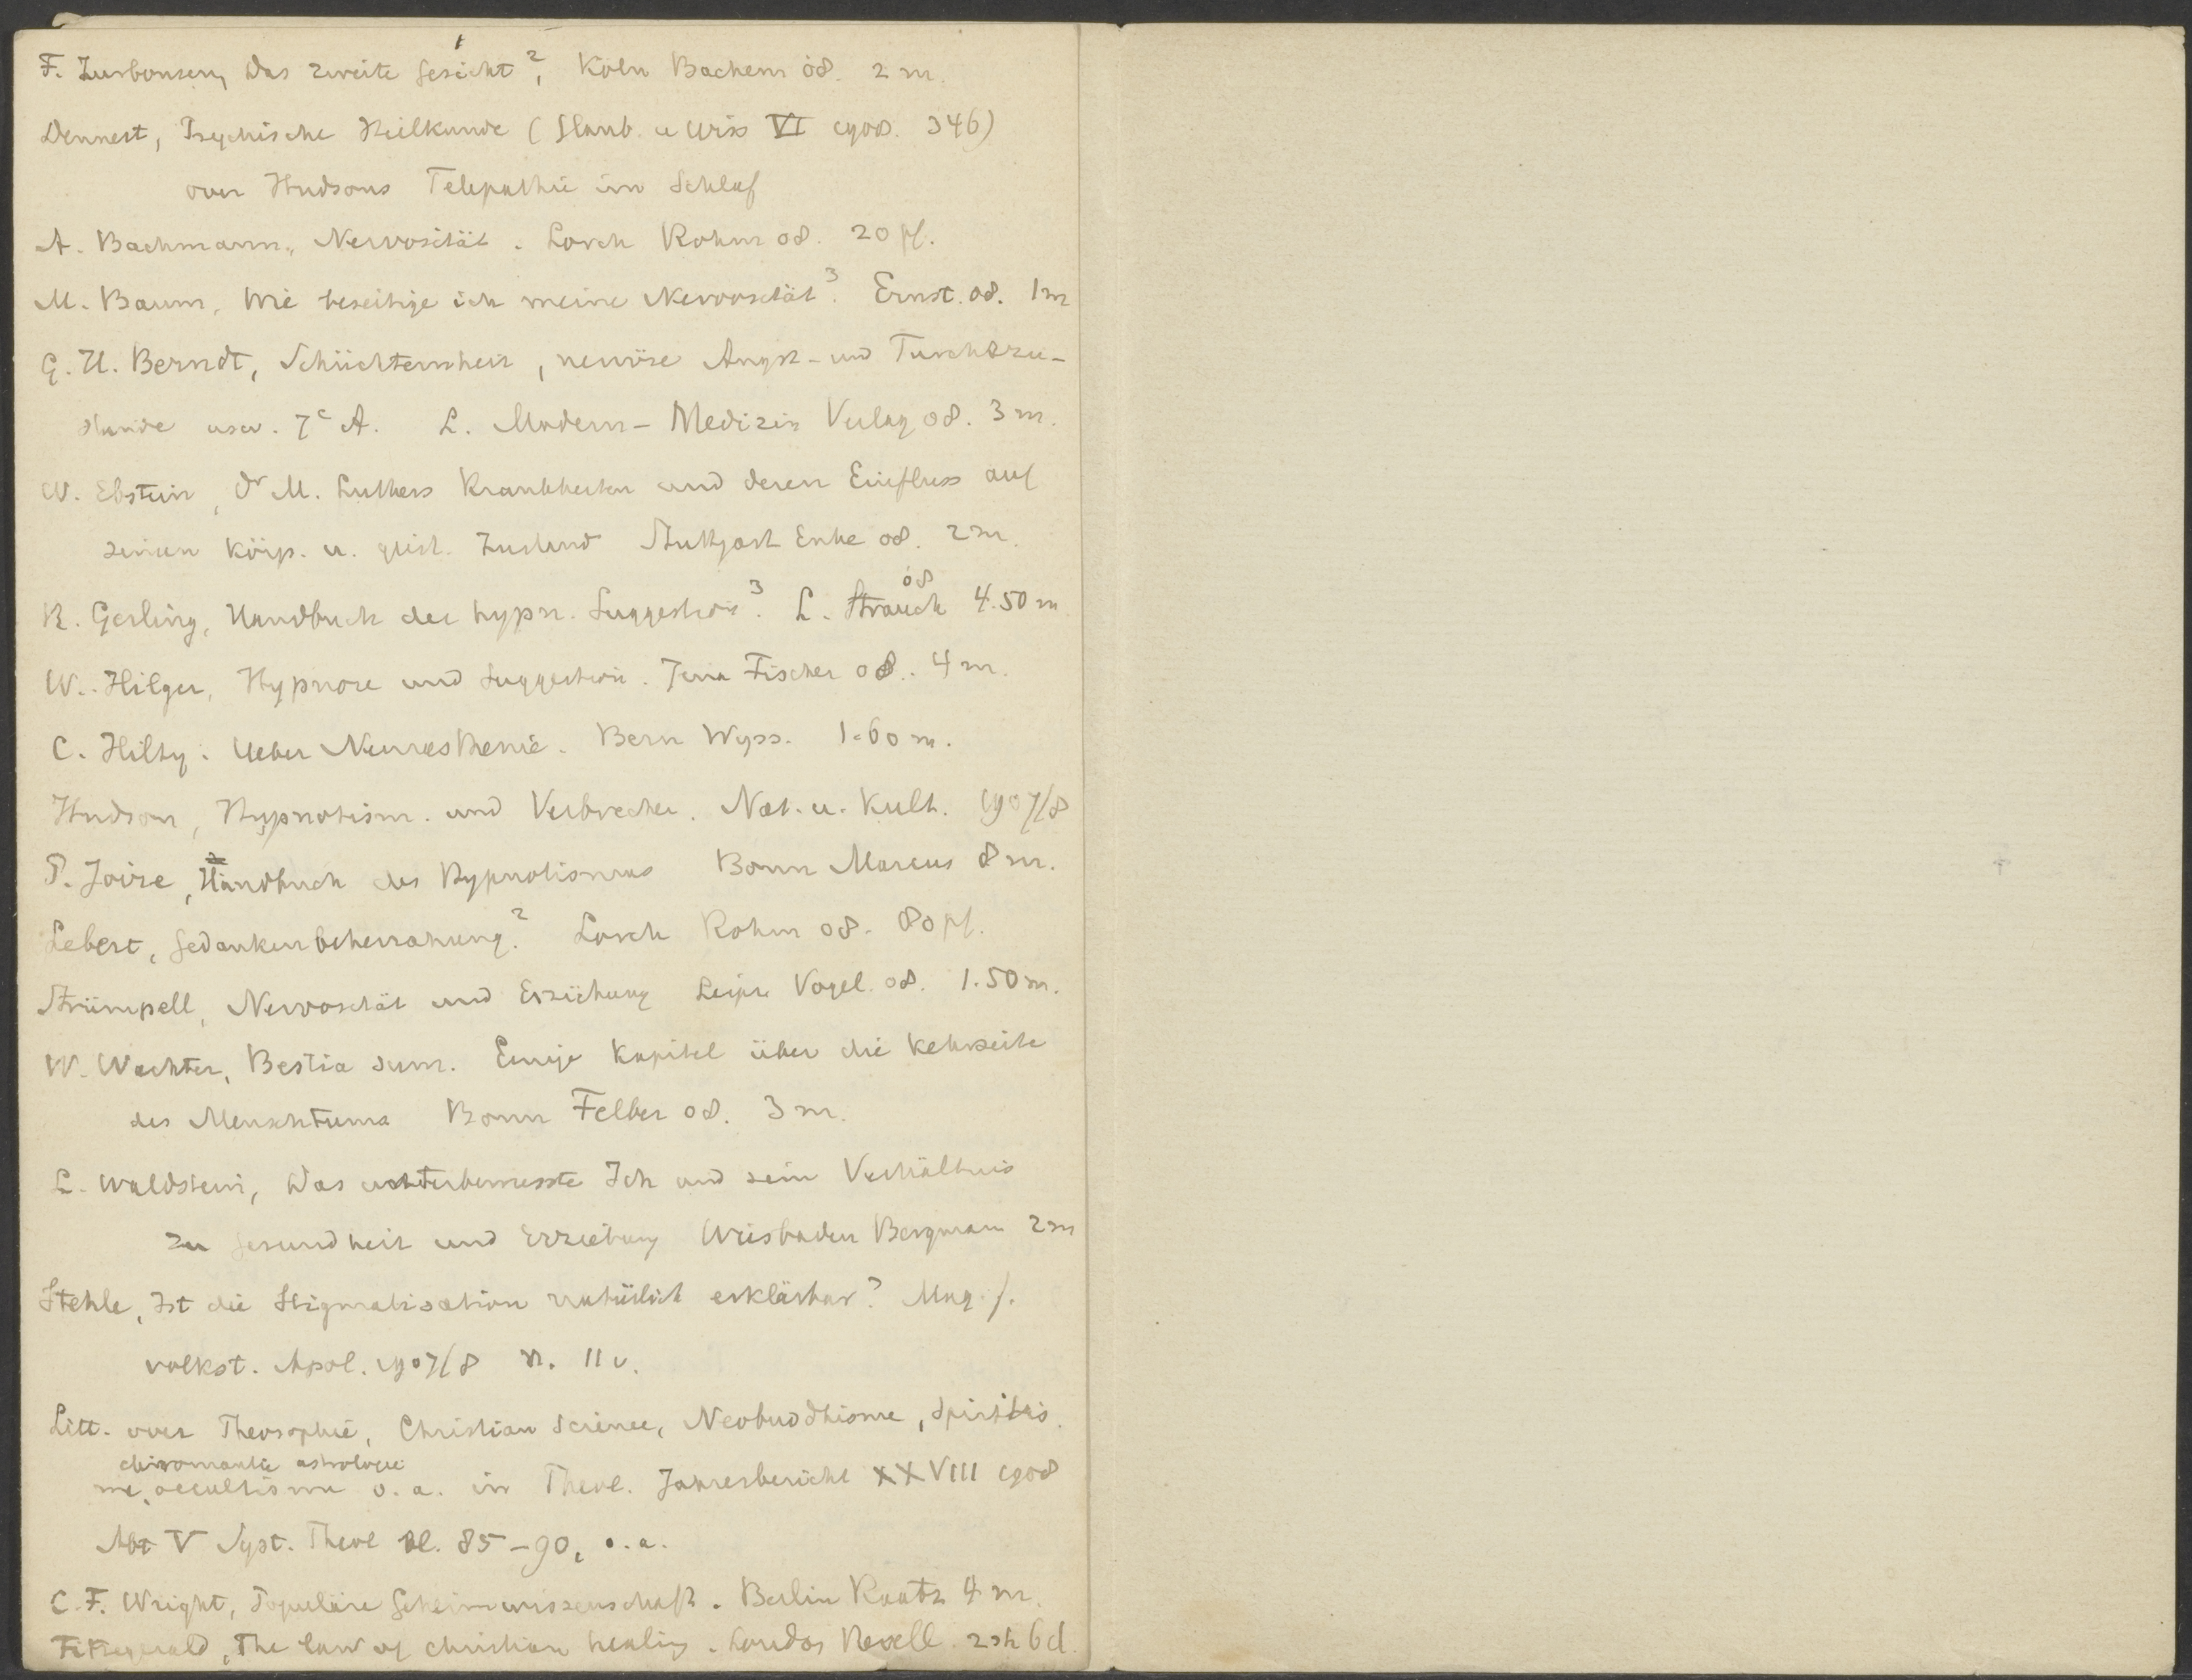 F. Zurbonsen, Das zweite Gesicht², Köln Bachem 08. 2 m.
Dennert, Psychische Heilkunde (Glaub. u Wiss VI 1908. 346)
over Hudsons Telepathie im Schlaf
A. Bachmann, Nervosität. Lorch Rohm 08. 20 pf.
M. Baum, Wie beseitige ich meine Nervosität³. Ernst. 08. 1 m
G. H. Berndt, Schüchternheit, nervöse Angst- und Furchtzu-
stände usw. 7e A. L. Modern-Medizin Verlag 08. 3 m.
W. Ebstein, Dr M. Luthers Krankheiten und deren Einfluss auf
seinen körp. u. geist. Zustand Stuttgart Enke 08. 2 m.
R. Gerling, Handbuch der hypn. Suggestion³. L. Strauch 08 4.50 m
W. Hilger, Hypnose und Suggestion. Jena Fischer 08. 4 m.
C. Hilty. Ueber Neurasthenie. Bern Wyss. 1.60 m.
Hudson, Hypnotism. und Verbrecher. Nat. u. Kult. 1907/8
P. Joire, Handbuch des Hypnotismus Bonn Marcus 8 m.
Lebert, Gedankenbeherrschung². Lorch Rohm 08. 80 pf.
Strümpell, Nervosität und Erziehung Leipz Vogel. 08. 1.50 m.
W. Wachter, Bestia sum. Einige Kapitel über die Kehrseite
des Menschtums Bonn Felber 08. 3 m.
L. Waldstein, Das unterbewusste Ich und sein Verhältnis
zu Gesundheit und Erziehung Wiesbaden Bergmann 2 m
Stehle, Ist die Stigmatisation natürlich erklärbar? Mag. f.
volkst. Apol. 1907/8 n. 11 v.
Litt. over Theosophie, Christian Science, Neobuddhisme, spiritis
chiromantie astrologie
me, occultisme o. a. in Theol. Jahresbericht XXVIII 1908
Abt V Syst. Theol bl. 85-90, o.a.
C. F. Wright, Populäre Geheimwissenschaft. Berlin Raatz 4 m.
Fitzgerald, The law of christian healing. London Revell. 2 sh 6 d.